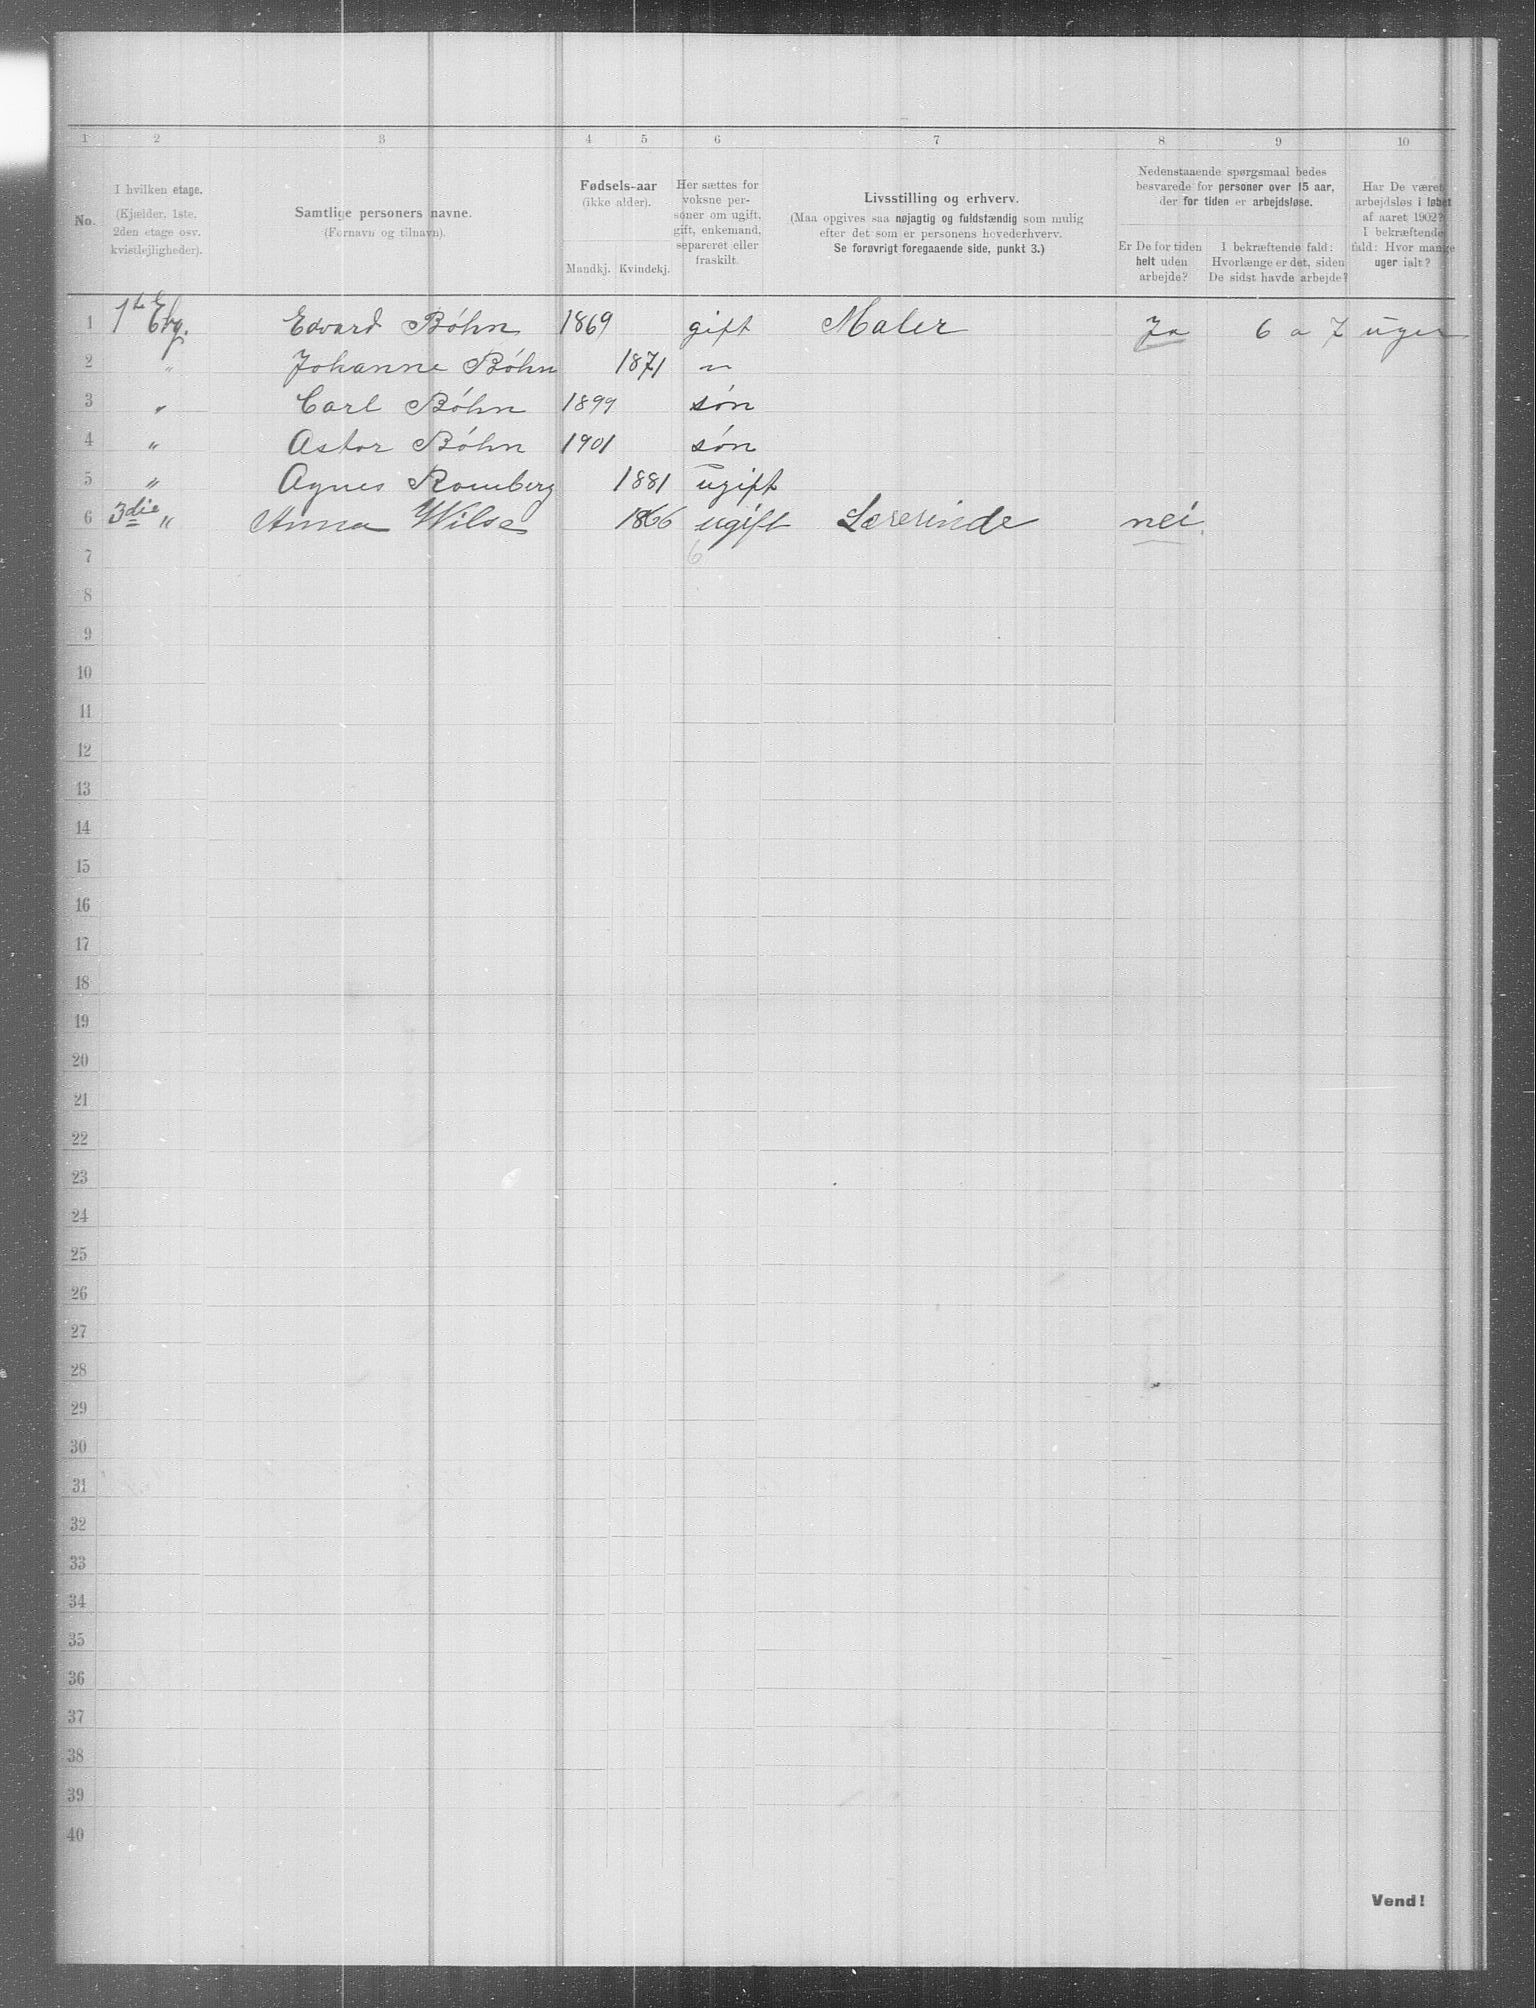 1 2 3 4 5 6 7 8 9 10
No.
I hvilken etage.
(Kjælder, 1ste.
2den etage osv.
kvistlejligheder).
Samtlige personers navne.
(Fornavn og tilnavn).
Fødsels-aar
(ikke alder).
Mandkj. Kvindekj.
Her sættes for
voksne per-
soner om ugift,
gift, enkemand,
separeret eller
fraskilt.
Livsstilling og erhverv.
(Maa opgives saa nøjagtig og fuldstændig som mulig
efter det som er personens hovederhverv.
Se forøvrigt foregaaende side, punkt 3.)
Nedenstaaende spørgsmaal bedes
besvarede for personer over 15 aar,
der for tiden er arbejdsløse.
Er De for tiden
helt uden
arbejde?
I bekræftende fald:
Hvorlænge er det, siden
De sidst havde arbejde?
Har De været
arbejdsløs i løbet
af aaret 1902?
I bekræftende
fald: Hvor mange
uger ialt?
1 1ste Etg. Edvard Bøhn 1869 gift Maler Ja 6 a 7 uger
2 " Johanne Bøhn 1871 "
3 " Carl Bøhn 1899 søn
4 " Astor Bøhn 1901 søn
5 " Agnes Romberg 1881 ugift
6 3die " Anna Wilse 1866 ugift Lærerinde nei.
7 6
8
9
10
11
12
13
14
15
16
17
18
19
20
21
22
23
24
25
26
27
28
29
30
31
32
33
34
35
36
37
38
39
40
Vend!